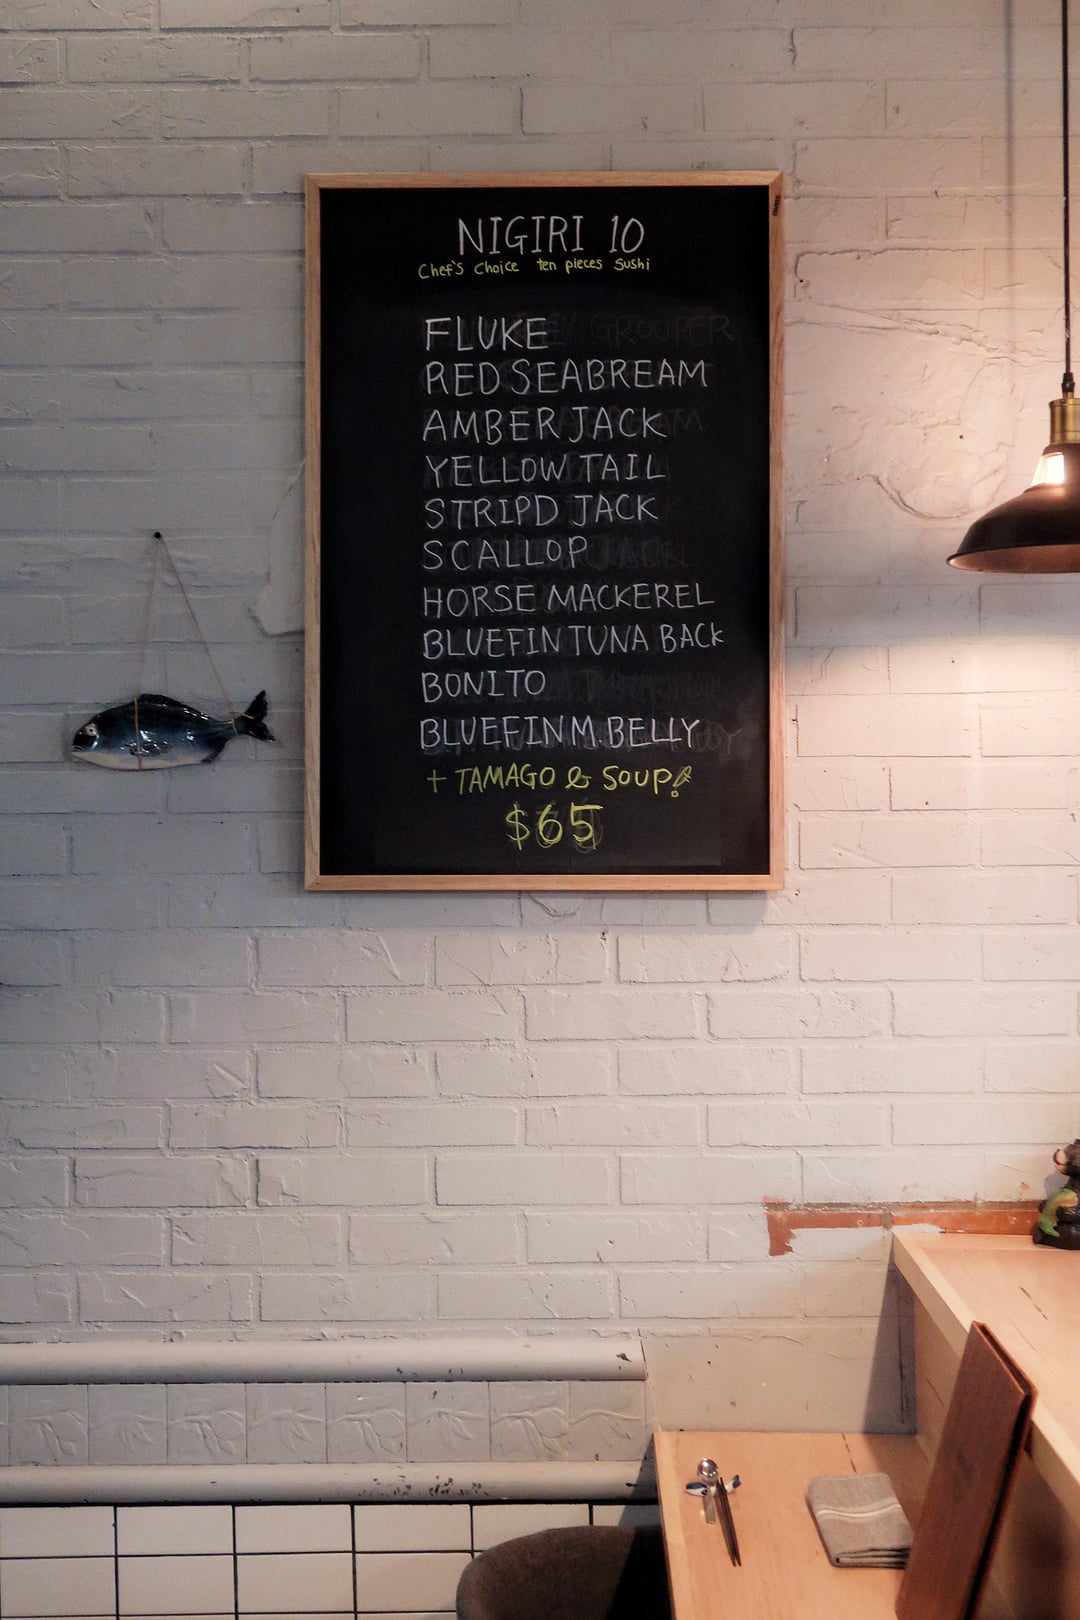 NIGIRI 10
Chef's Choice ten pieces Sushi
FLUKE
RED SEABREAM
AMBER JACK
YELLOW TAIL
STRIPD JACK
SCALLOP
HORSE MACKEREL
BLUEFIN TUNA BACK
BONITO
BLUEFIN M. BELLY
+ TAMAGO & SOUP!
$65